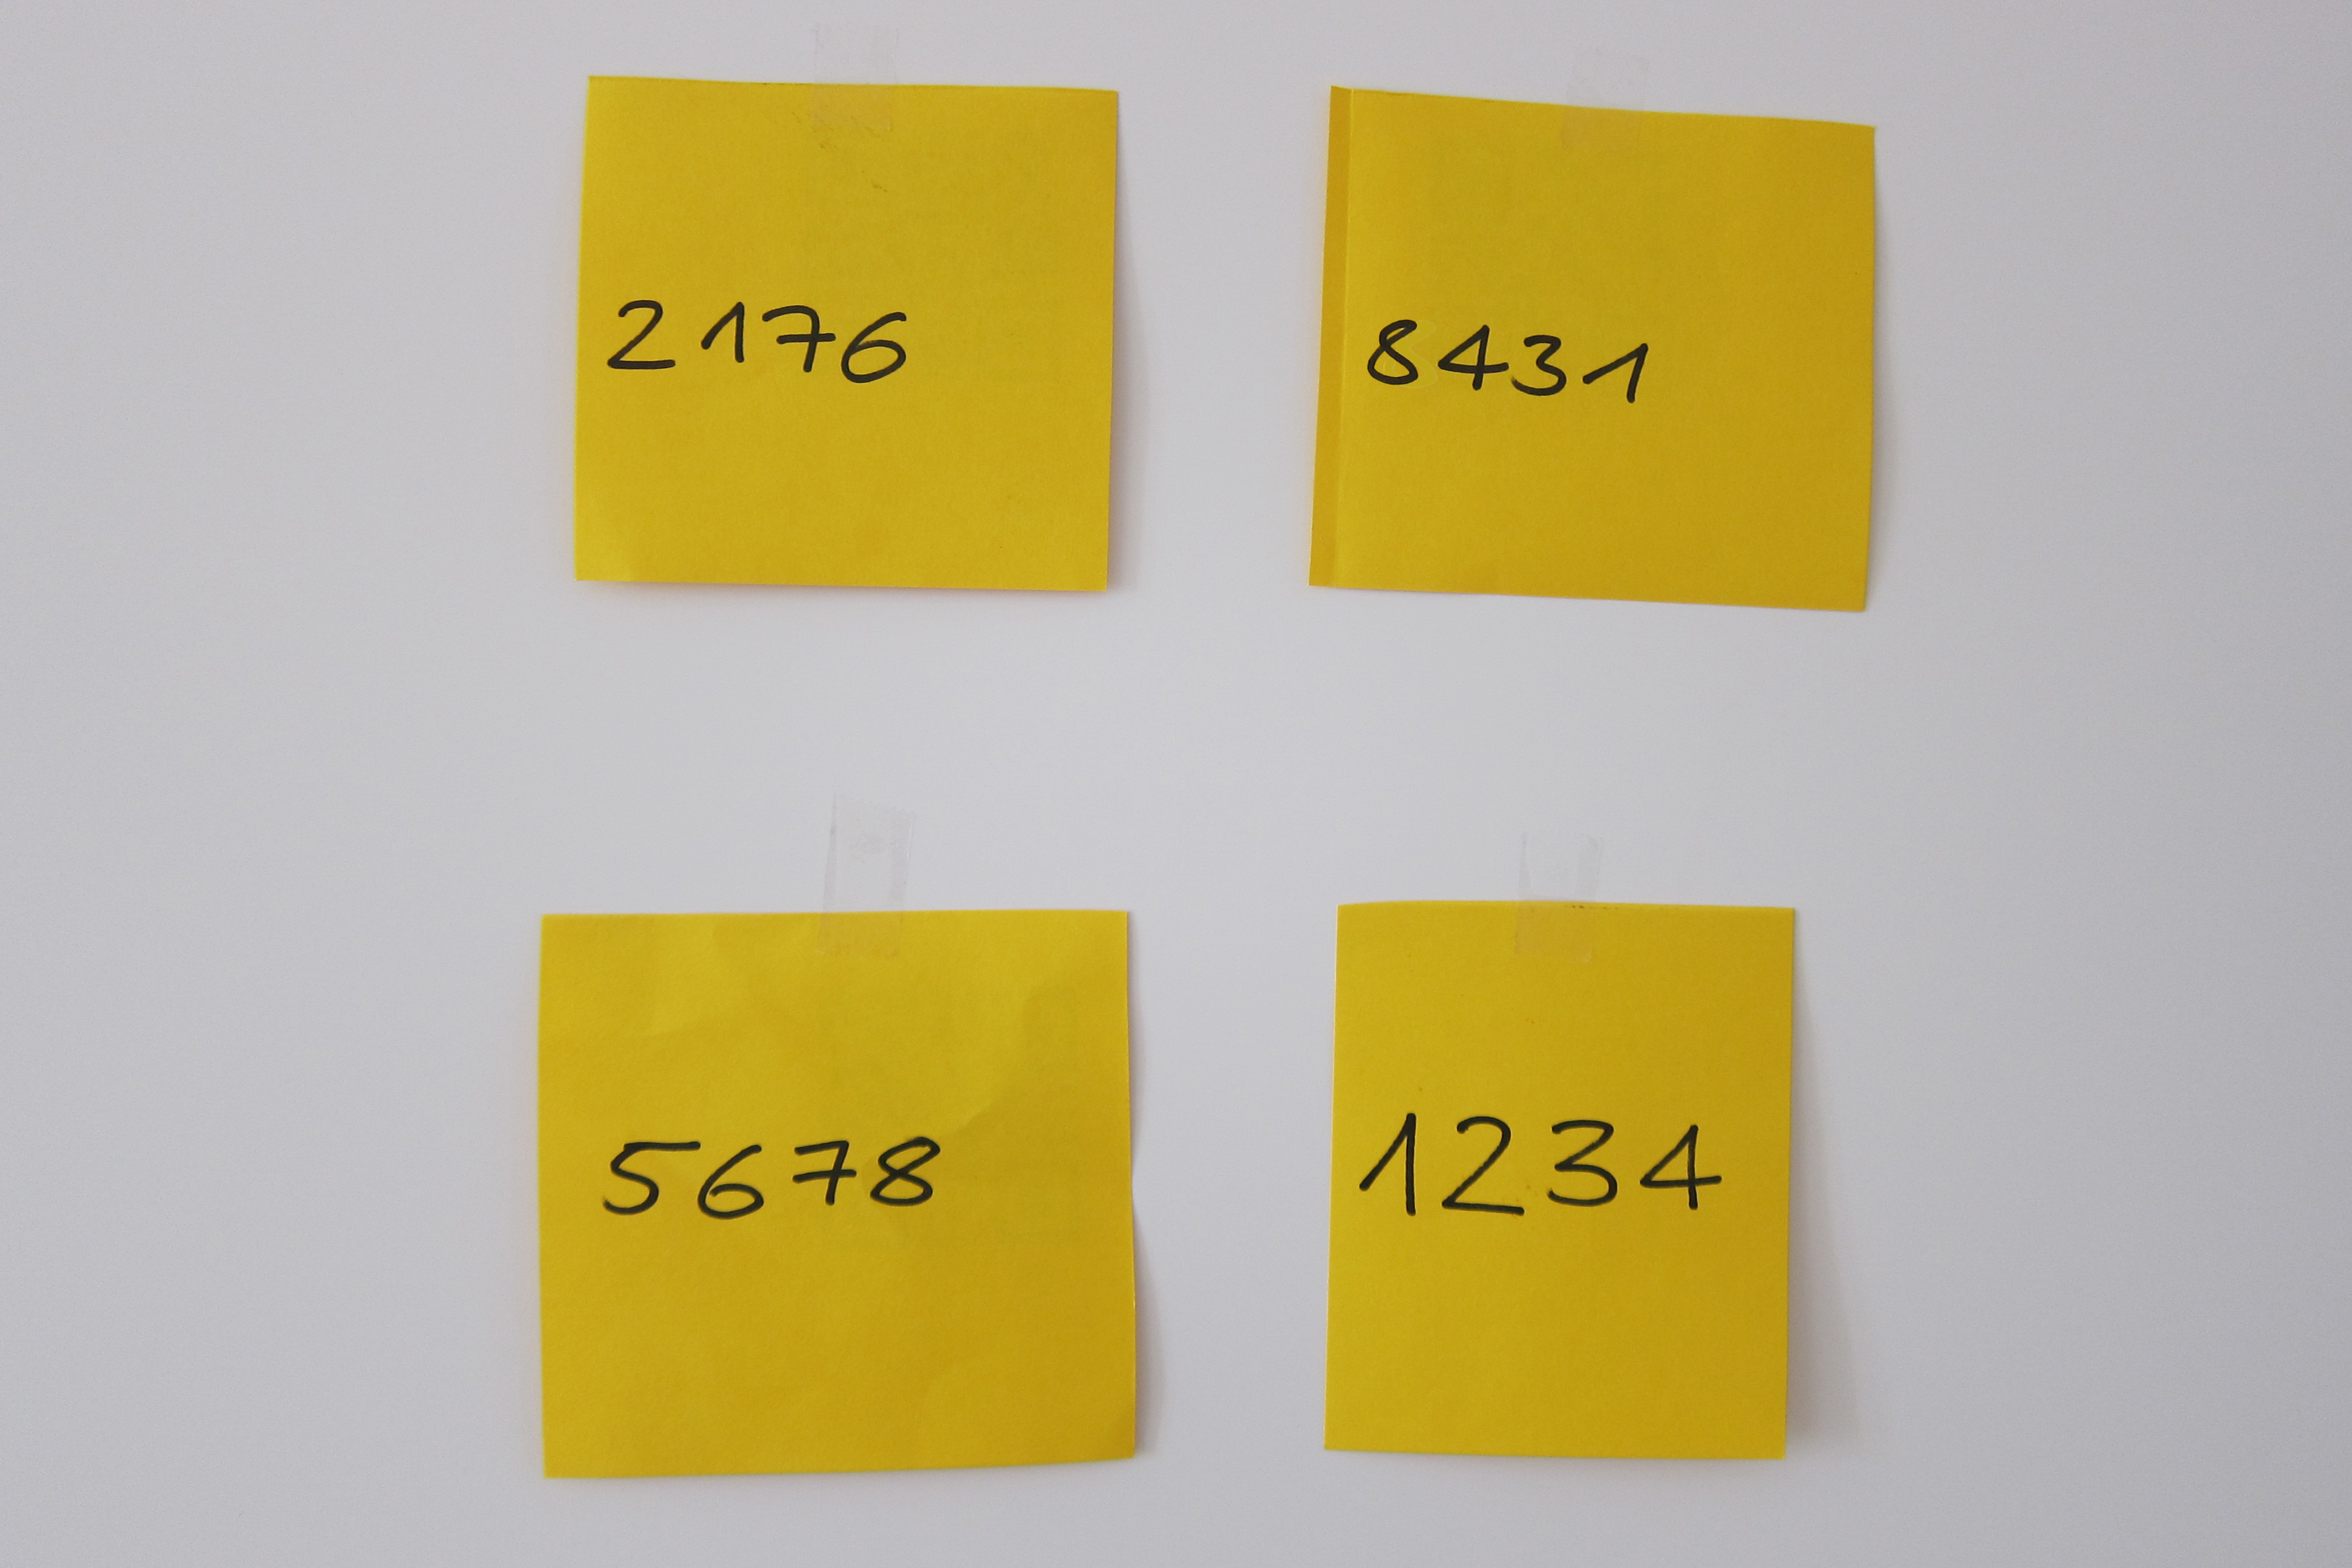 2176
8431
5678
1234